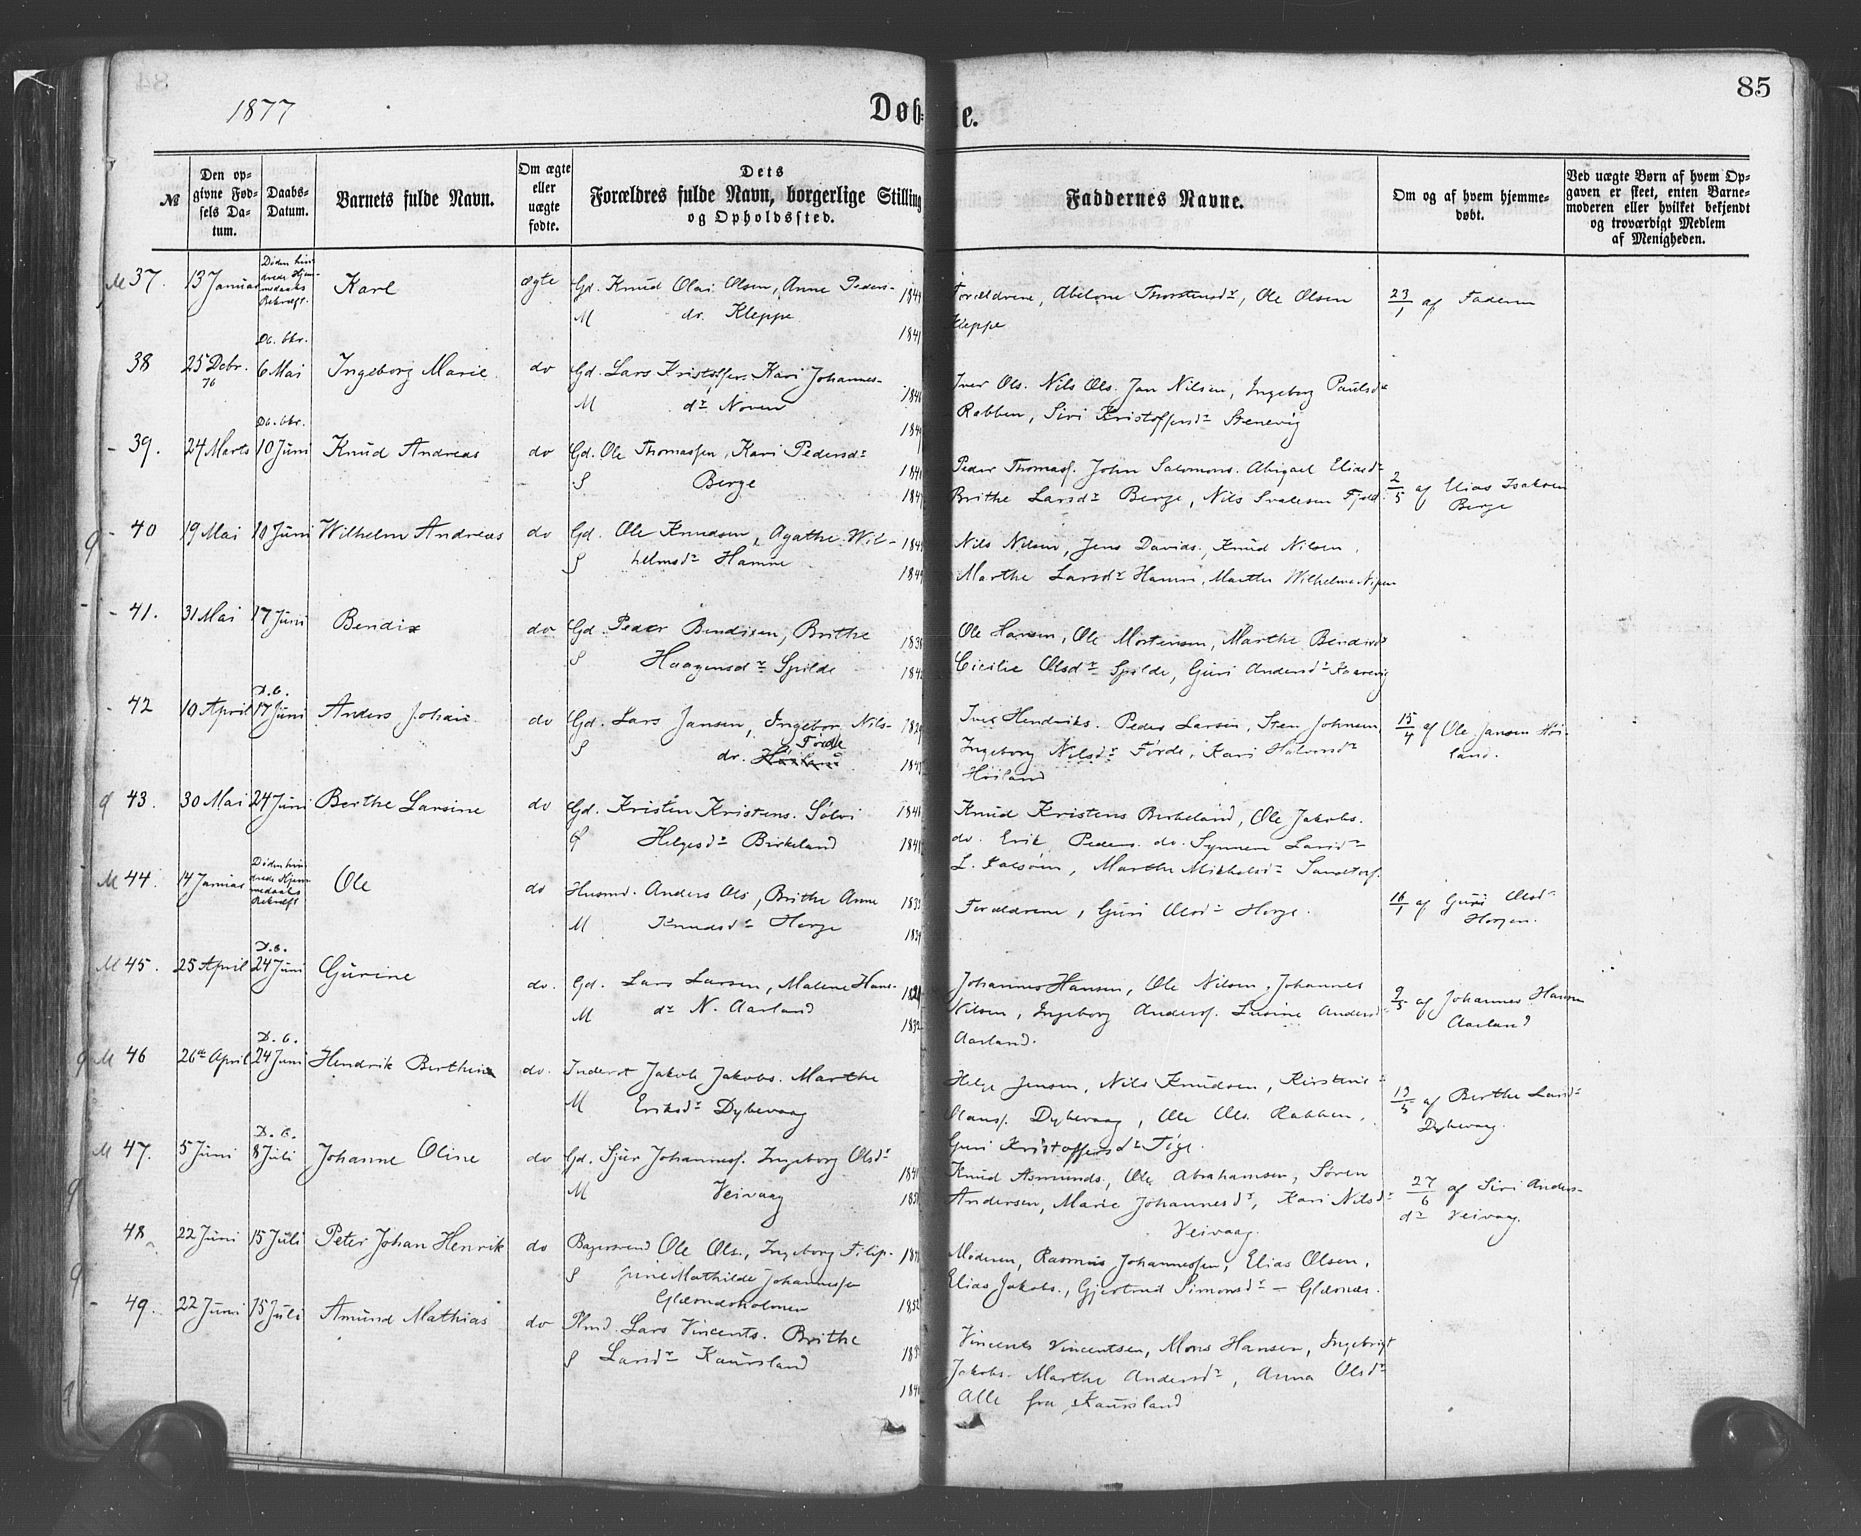 85
1877
Døb- te.
№
Den opgivne Fødsels Datum.
Daabs-Datum.
Barnets fulde Navn.
Om ægte eller uægte fødte.
Dets Forældres fulde Navn, borgerlige Stilling og Opholdssted.
Faddernes Navne.
Om og af hvem hjemmedøbt.
Ved uægte Børn af hvem Opgaven er skeet, enten Barnemoderen eller hvilket bekjendt og troværdigt Medlem af Menigheden.
M 37. 13 Januar Døden hindrede Hjemmedaabs Bekræft. Karl ægte Gd. Knud Olai Olsen, Anne Peders- 1844 Forældrene, Abelone Thorstensdr, Ole Olsen 23/1 af Faderen
M dr. Kleppe 1841 Kleppe
38 25 Debr. 76 Db. bkr. 6 Mai Ingeborg Marie do Gd. Lars Kristoffers. Kari Johannes- Iver Ols. Nils Ols. Jan Nilsen, Ingeborg Paulsdr
M dr Noven Rabben, Siri Kristoffersdr Stenevig
- 39. 24 Marts Db. bkr. 10 Juni Knud Andreas do Gd. Ole Thomassen, Kari Pedersdr 1841 Peder Thomass. John Salomons. Abigael Eliasdr 2/5 af Elias Isaksen
S Berge Brithe Larsdr Berge, Nils Berge
- 40 19 Mai 10 Juni Wilhelm Andreas do Gd. Ole Knudsen, Agathe Wil- Nils Nilsen, Jens Davids. Knud Nilsen.
S helmsdr Hamre 1844 Marthe Larsdr Hamre, Marthe Wilhelms
- 41. 31 Mai 17 Juni Bendix do Gd. Peder Bendixen, Brithe Ole Hansen, Ole Mortensen, Marthe Bendixdr
S Haagensdr Spilde Cicilie Olsdr Spilde, Guri Andersdr Kaarevig
- 42 10 April D.b. 17 Juni Anders Johan do Gd. Lars Jansen, Ingebor Nils- 1829 Iver Hendriks. Peder Larsen, Sten Johnsen, 15/4 af Ole Jansen Høi-
S dr. Førde Ingeborg Nilsdr Førde, Kari land.
Høiland
43. 30 Mai 24 Juni Berthe Larsine do Gd. Kristen Kristens. Sølvi Knud Kristens Birkeland, Ole Jakobs.
S Helgesdr Birkeland 1841 do. Erik Peders. do. Synneve Larsdr
Marthe Mikkelsdr
M 44. 14 Januar Døden hindrede Hjemmedaabs Bekræft Ole do Husmd. Anders Ols, Brithe Anne Forældrene, Guri Olsdr Horge. 16/1 af Guri Olsdr
M Knudsdr Horge Horgen.
M 45. 25 April D.b. 24 Juni Gurine do. Gd. Lars Larsen, Malene Hans- Johannes Hansen, Ole Nilsen, Johannes 9/5 af Johannes Hansen
M dr N. Aarland 1832 Nilsen, Ingeborg Anderss. Lusine Andersd Aarland
Aarland.
M 46 26de April D.b. 24 Juni Hendrik Berthin do. Inderst Jakob Jakobs. Marthe Helge Jensen, Nils Knudsen, Kirstine 13/5 af Berthe Larsdr
M Eriksdr Dybevaag Olauss. Dybevaag, Ole Ols. Rabben, Dybevaag.
Guri Kristoffersdr
M 47. 5 Juni D.b. 8 Juli Johanne Oline do Gd. Sjur Johanness. Ingeborg Olsdr Knud Asmunds., Ole Abrahamsen, Søren 27/6 af Siri Anders-
M Veivaag Andersen, Marie Johannesdr, Kari Nilsdr dr Veivaag.
Veivaag.
48 22 Juni 15 Juli Peter Johan Henrik do Bagersvend Ole Ols., Ingeborg Filip- Moderen, Rasmus Johannessen, Elias Olsen,
S pine Mathilde Johannesse Elias Jakobs., Gjertrud Simonsdr -
1852
- 49. 22 Juni 15 Juli Amund Mathias do Plmd. Lars Vincents. Brithe Vincents Vincentsen, Mons Hansen, Ingebrigt
S Larsdr Kaursland Jakobs. Marthe Andersdr, Anna Olsdr
Alle fra Kaursland